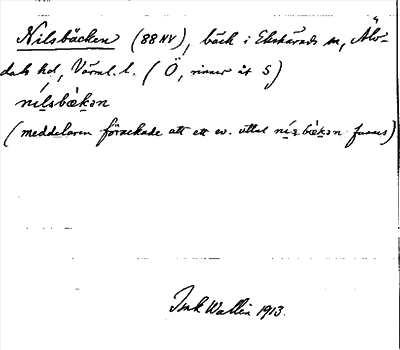 Nilsbäcken (88 NV), bäck i Ekshärads sn, Älv-
dals hd, Värml. l. (Ö, rinner åt S)
ní̀lsbæ̀kən
(meddelaren försäkrade att ett ev. uttal ní̀sbæ̀kən funnes)
Wallin 1913.